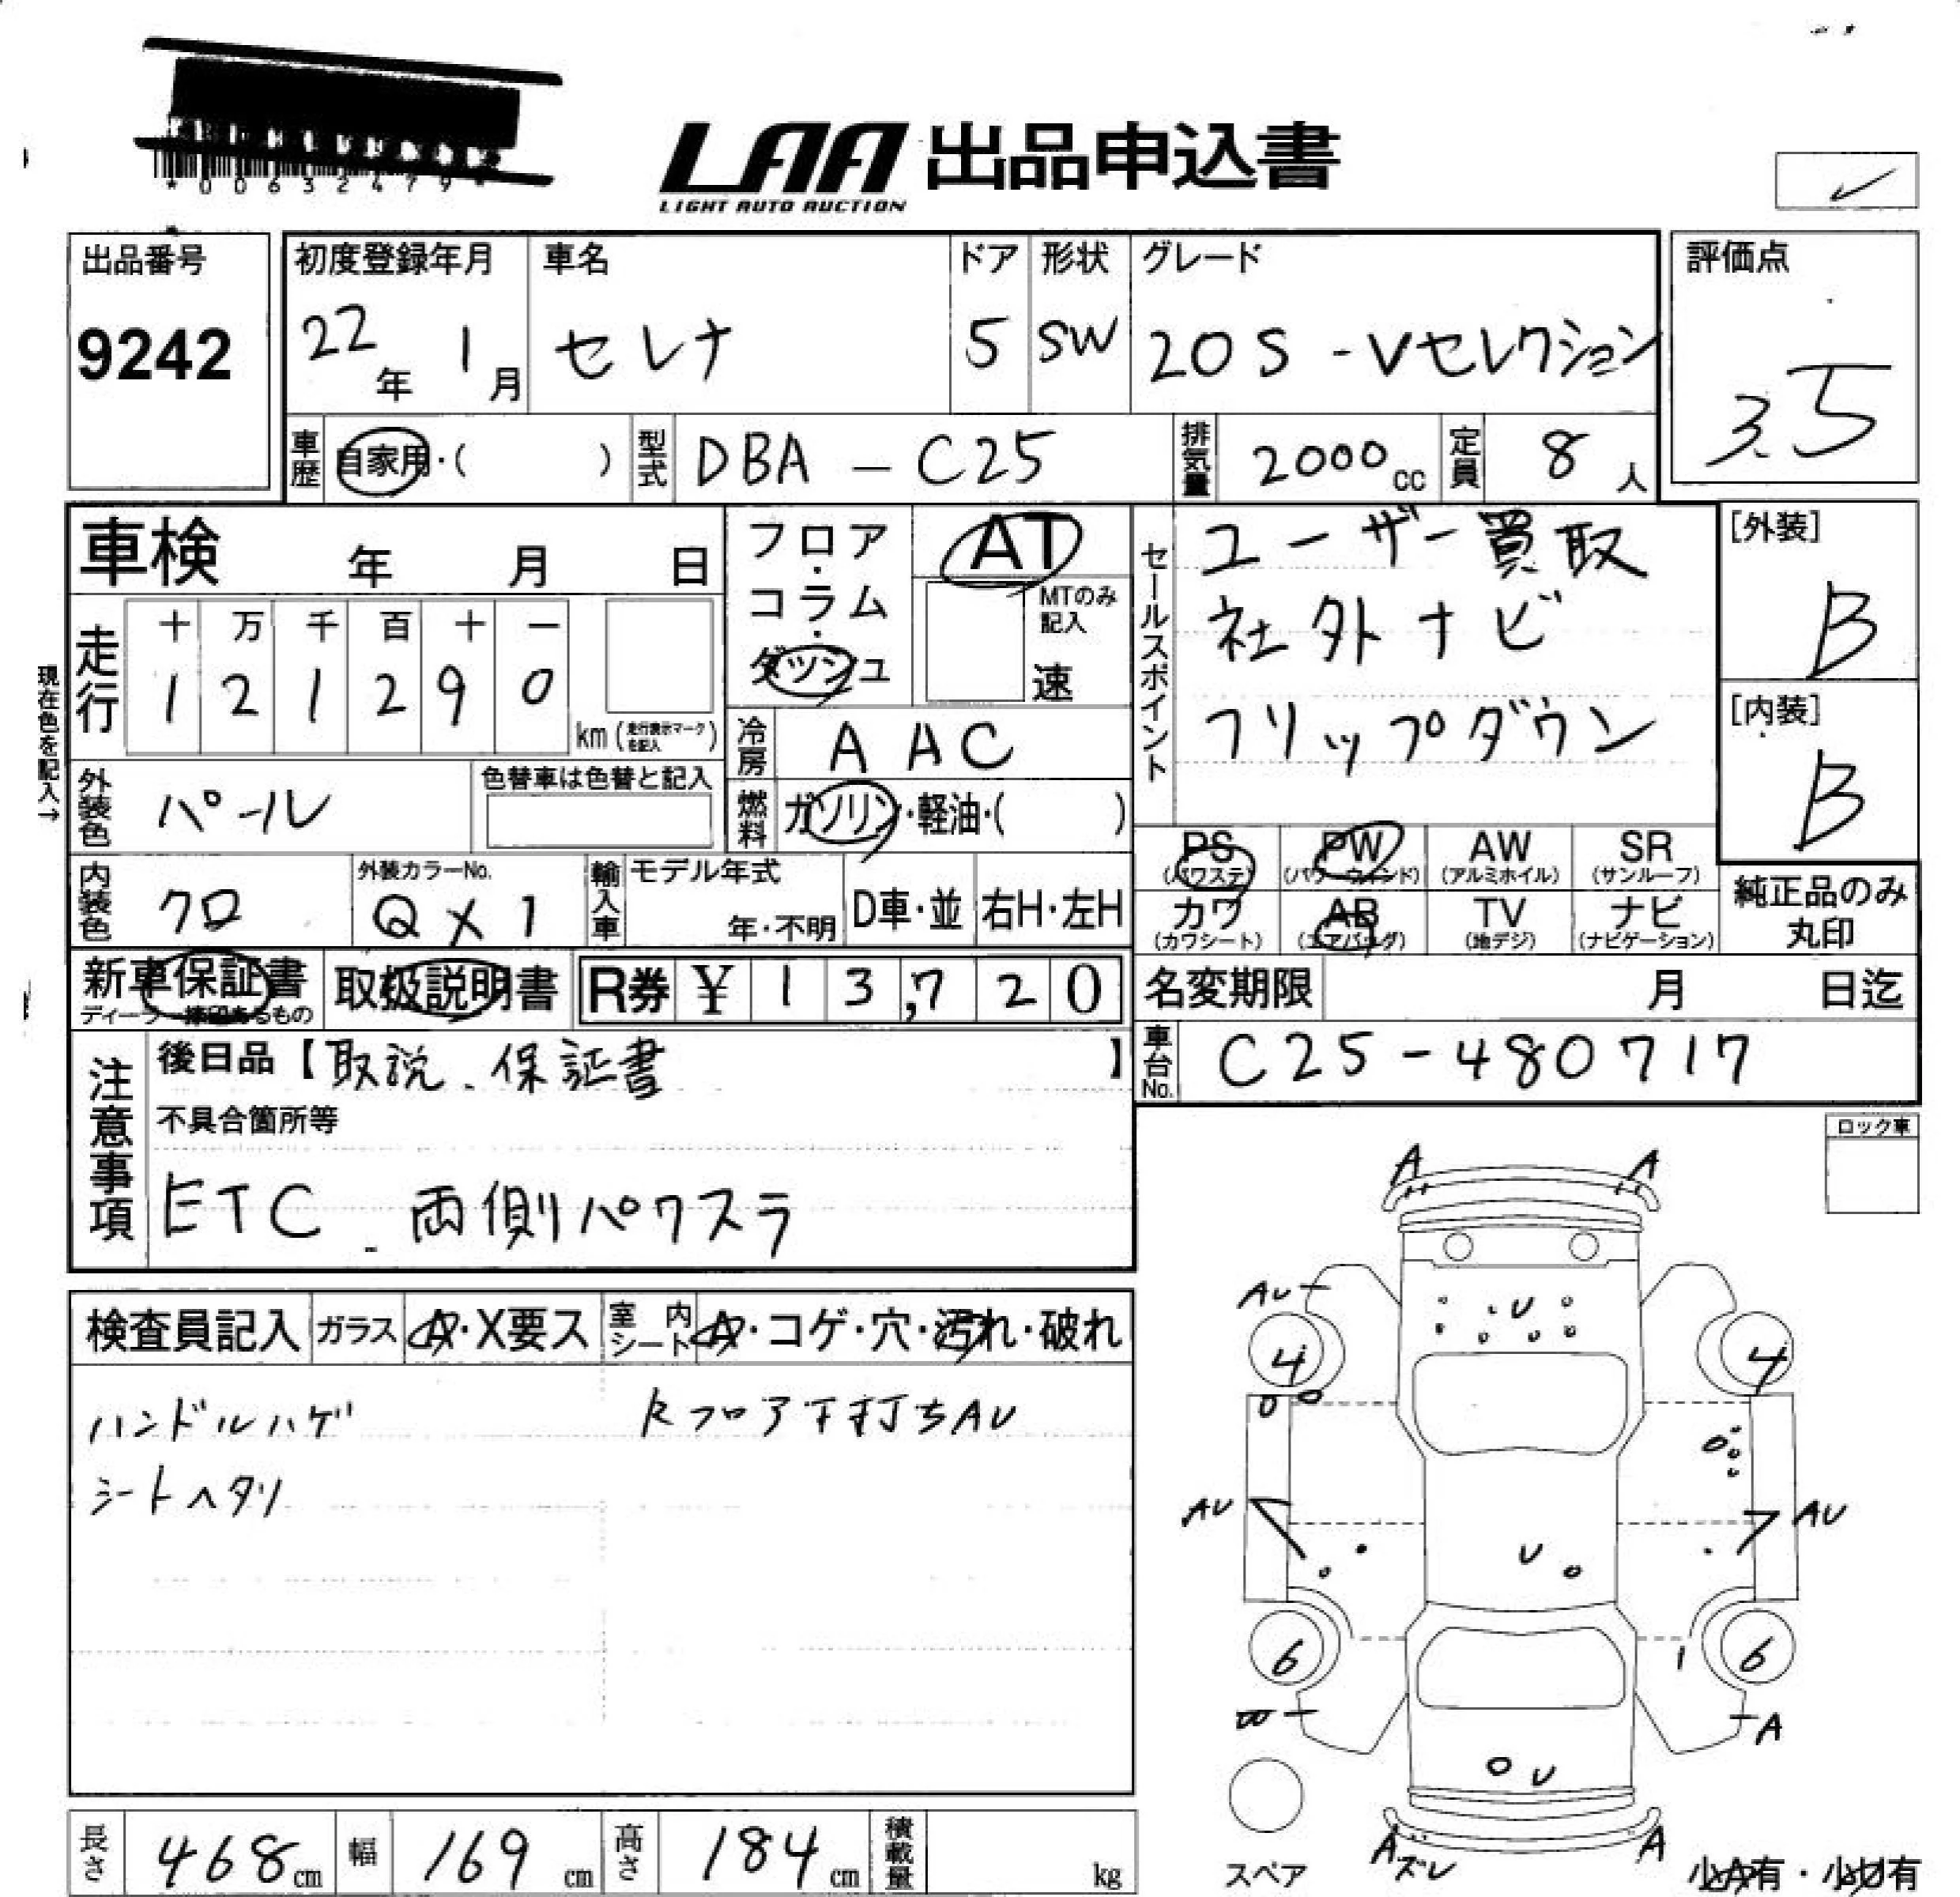 *00632479*
LAA 出品申込書
LIGHT AUTO AUCTION
出品番号
9242
初度登録年月
22年 1月
車名
セレナ
ドア
5
形状
SW
グレード
20S -Vセレクション
評価点
3.5
車歴 自家用・( )
型式 DBA - C25
排気量 2000cc
定員 8人
車検 年 月 日
フロア・コラム・ダッシュ
AT
MTのみ記入
速
セールスポイント
ユーザー買取
社外ナビ
フリップダウン
[外装]
B
[内装]
B
現在色を記入→
走行
十 万 千 百 十 一
1 2 1 2 9 0
km (走行表示マークを記入)
冷房 AAC
燃料 ガソリン・軽油・( )
外装色 パール
色替車は色替と記入
内装色 クロ
外装カラーNo.
QX1
輸入車
モデル年式
年・不明
D車・並
右H・左H
PS (パワステ)
PW (パワーウィンド)
AW (アルミホイル)
SR (サンルーフ)
カワ (カワシート)
AB (エアバッグ)
TV (地デジ)
ナビ (ナビゲーション)
純正品のみ
丸印
新車保証書
取扱説明書
R券 ¥ 13,720
名変期限 月 日迄
車台No. C25-480717
注意事項
後日品【取説、保証書】
不具合箇所等
ETC 両側パワスラ
ロック車
検査員記入
ガラス A・X要ス
室内シート A・コゲ・穴・汚れ・破れ
ハンドルハゲ
Rフロア下打ちAU
シートヘタリ
A A
AU
U
4 4
AU AU
U
6 6
A
U
A ズレ A
スペア
小A有・小U有
長さ 468cm
幅 169cm
高さ 184cm
積載量 kg